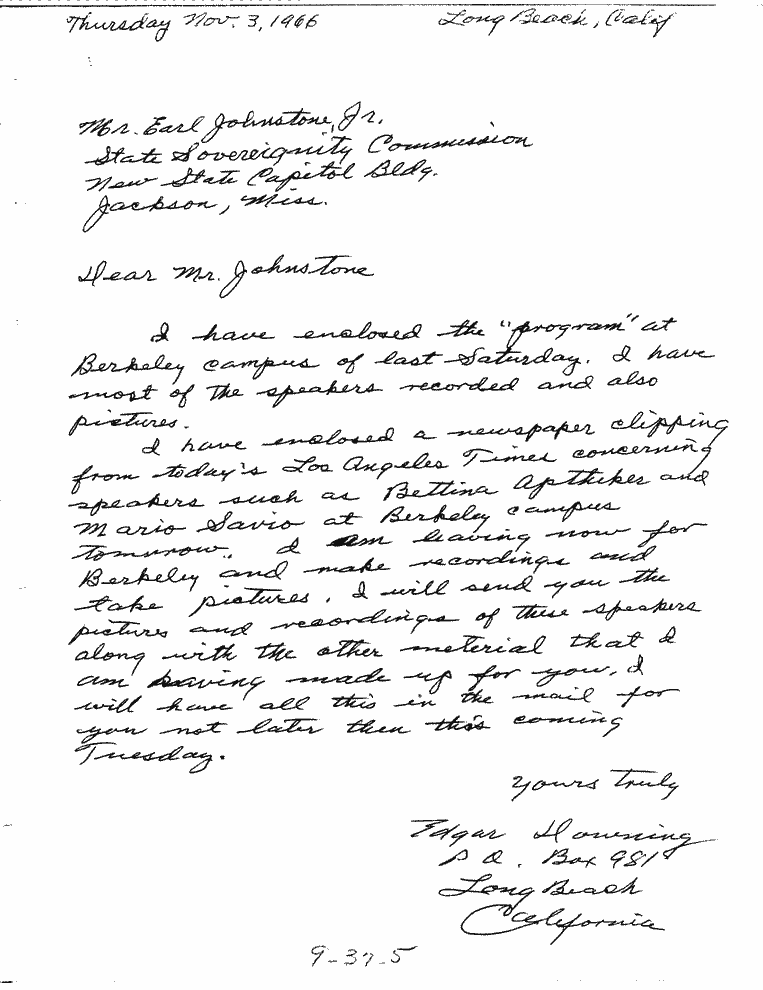 Thursday Nov. 3, 1966 Long Beach, Calif
Mr. Earl Johnstone, Jr.
State Sovereignity Commission
New State Capitol Bldg.
Jackson, Miss.
Dear Mr. Johnstone
I have enclosed the "program" at
Berkeley campus of last Saturday. I have
most of the speakers recorded and also
pictures.
I have enclosed a newspaper clipping
from today's Los Angeles Times concerning
speakers such as Bettina Aptheker and
Mario Savio at Berkeley campus
tomorrow. I am leaving now for
Berkeley and make recordings and
take pictures. I will send you the
pictures and recordings of these speakers
along with the other material that I
am having made up for you. I
will have all this in the mail for
you not later then this coming
Tuesday.
Yours truly
Edgar Downing
P.O. Box 981
Long Beach
California
9-37-5